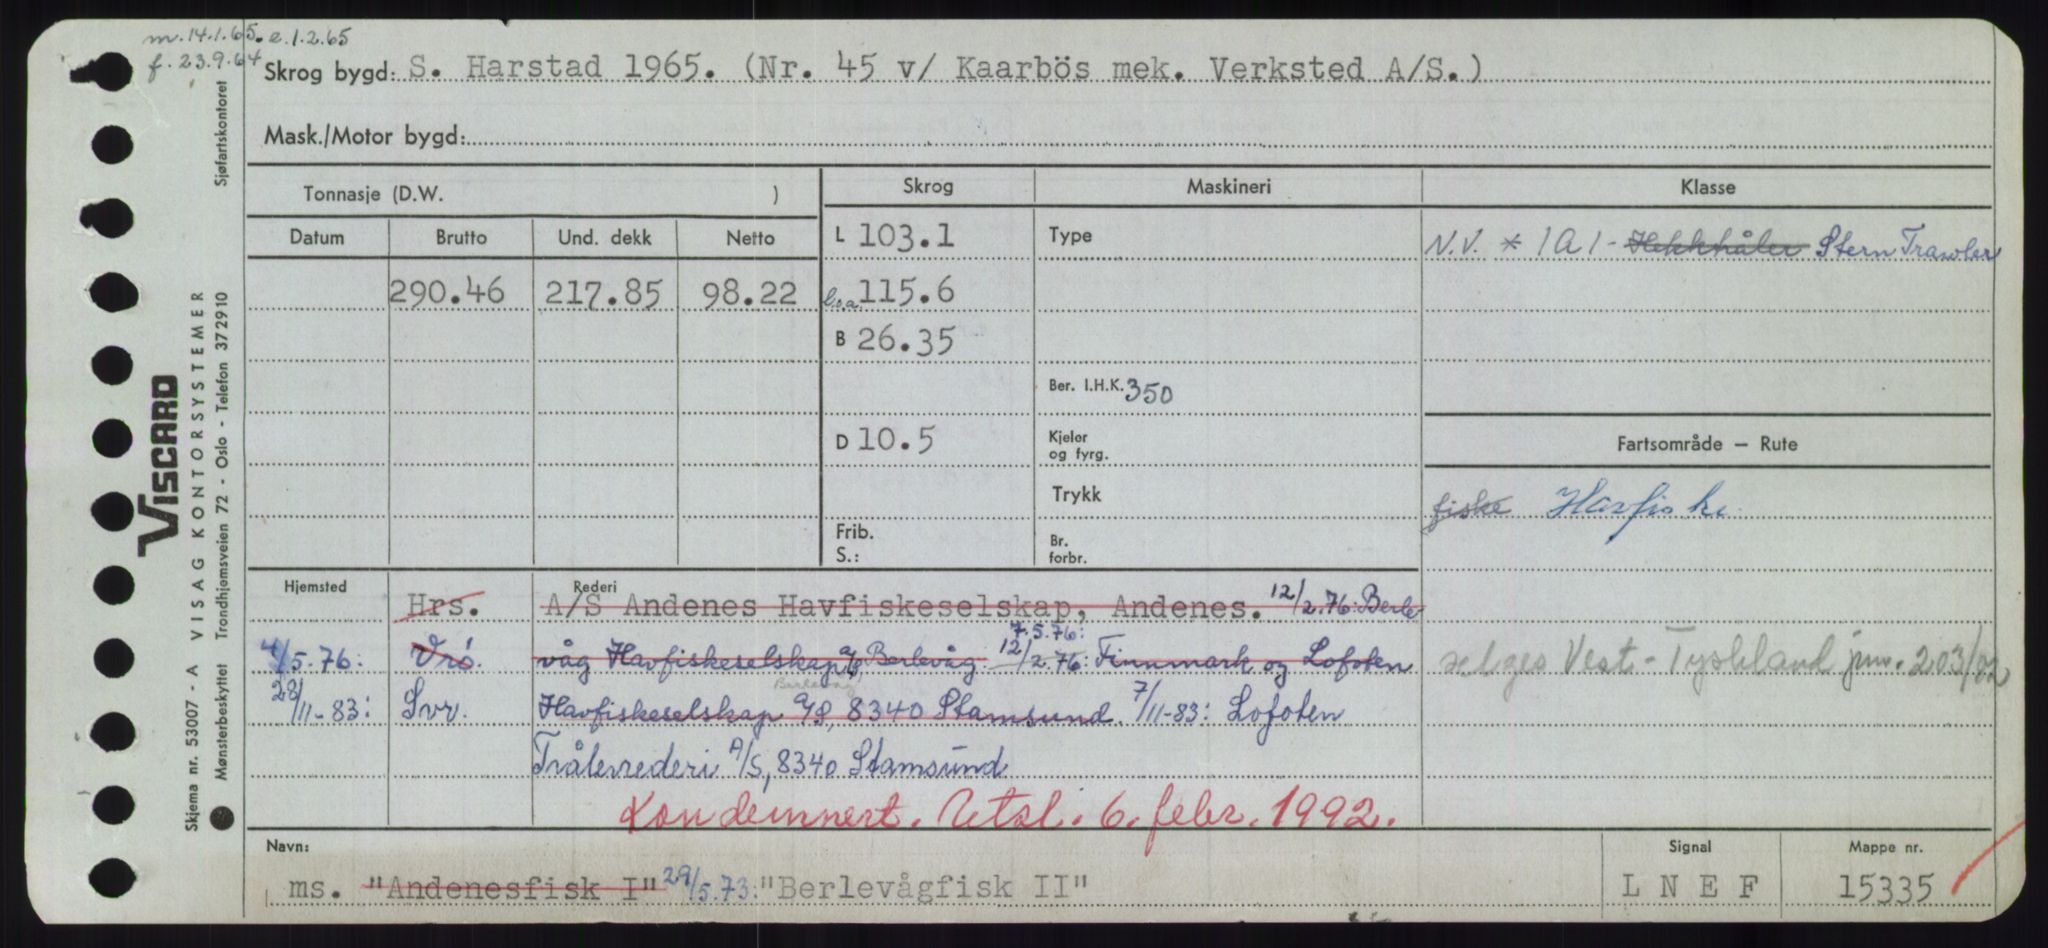 m. 14.1.65. e. 1.2.65
f. 23.9.64
Skrog bygd: S. Harstad 1965. (Nr. 45 v/ Kaarbös mek. Verksted A/S.)
Mask./Motor bygd:
Tonnasje (D.W. )
Skrog Maskineri Klasse
Datum Brutto Und. dekk Netto
L 103.1 Type N.V. * 1A1- Hekktråler Stern Trawler
290.46 217.85 98.22 l.o.a. 115.6
B 26.35
Ber. I.H.K. 350
D 10.5 Kjeler og fyrg.
Fartsområde — Rute
Trykk
fiske Havfiske
Frib.
S.:
Br. forbr.
Hjemsted Rederi
Hrs. A/S Andenes Havfiskeselskap, Andenes. 12/2.76: Berle-
7.5.76:
4/5.76: Vrö. våg Havfiskeselskap A/S, Berlevåg. 12/2.76: Finnmark og Lofoten
selges Vest-Tyskland jnr. 203/82
Berlevåg
28/11-83: Svr. Havfiskeselskap A/S, 8340 Stamsund. 7/11-83: Lofoten
Trålerrederi A/S, 8340 Stamsund
Kondemnert. Utsl. 6. febr. 1992.
Navn: Signal Mappe nr.
ms. "Andenesfisk I" 29/5.73: "Berlevågfisk II" LNEF 15335
Skjema nr. 53007 - A VISAG KONTORSYSTEMER
Mønsterbeskyttet Trondhjemsveien 72 - Oslo - Telefon 372910 Sjøfartskontoret
VISCARD